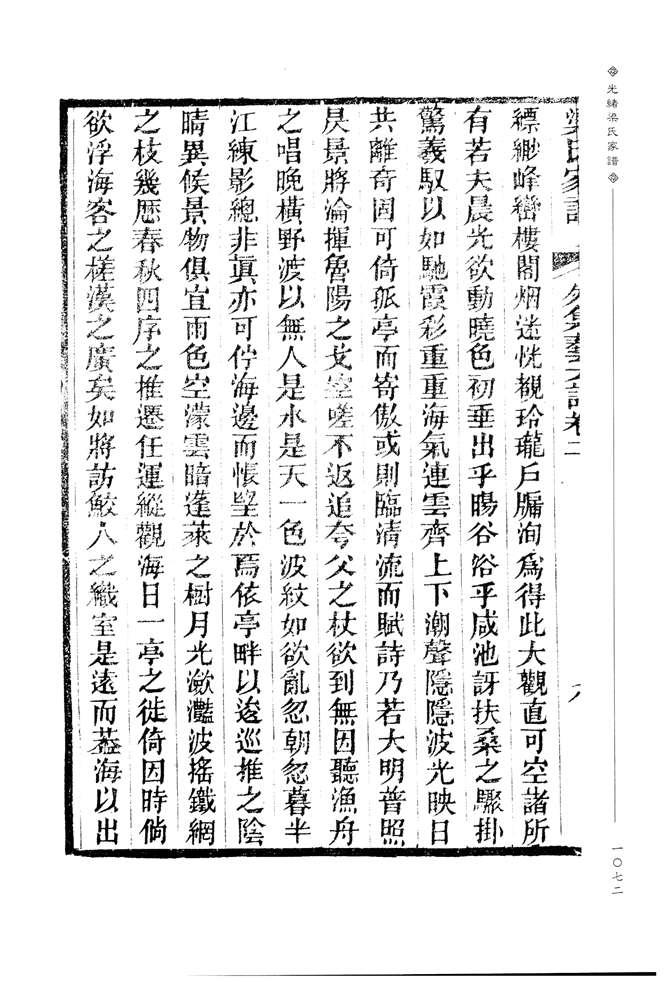 光緒梁氏家譜
一〇七二
梁氏家譜 外集藝文譜卷二 八
縹緲峰巒樓閣烟迷恍覩玲瓏戶牖洵爲得此大觀直可空諸所
有若夫晨光欲動曉色初垂出乎暘谷浴乎咸池訝扶桑之驟掛
驚羲馭以如馳霞彩重重海氣連雲齊上下潮聲隱隱波光映日
共離奇固可倚孤亭而寄傲或則臨清流而賦詩乃若大明普照
昃景將淪揮魯陽之戈空嗟不返追夸父之杖欲到無因聽漁舟
之唱晚橫野渡以無人是水是天一色波紋如欲亂忽朝忽暮半
江練影總非眞亦可佇海邊而悵望於焉依亭畔以逡巡推之陰
晴異候景物俱宜雨色空濛雲暗蓬萊之樹月光瀲灩波搖鐵網
之枝幾歷春秋四序之推遷任運縱觀海日一亭之徙倚因時倘
欲浮海客之槎漢之廣矣如將訪鮫人之織室是遠而蓋海以出